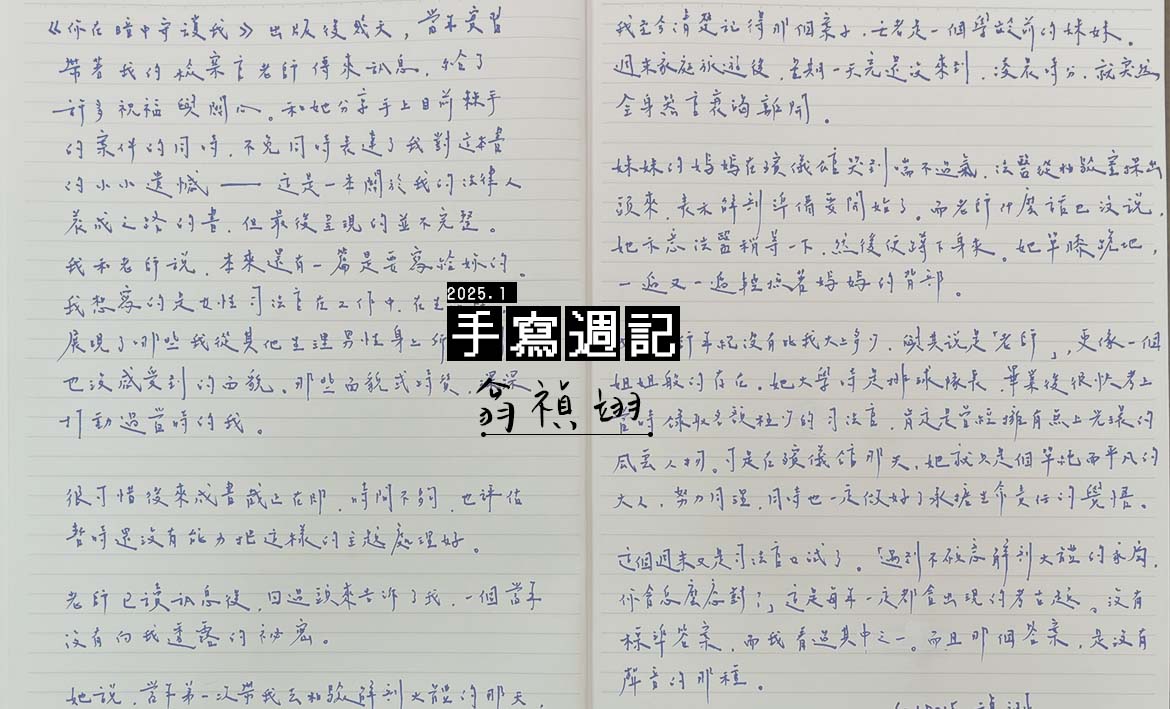 《你在暗中守護我》出版後幾天，當年實習
帶著我的檢察官老師傳來訊息，給了
許多祝福與關心。和她分享手上目前棘手
的案件的同時，不免同時表達了我對這本書
的小小遺憾——這是一本關於我的法律人
養成之路的書，但最後呈現的並不完整。
我和老師說，本來還有一篇是要寫給妳的。
我想寫的是女性司法官在工作中、在生
展現了那些我從其他生理男性身上所
也沒感受到的面貌。那些面貌或特質，深深
打動過當時的我。
很可惜後來成書截止在即，時間不夠，也評估
暫時還沒有能力把這樣的主題處理好。
老師已讀訊息後，回過頭來告訴了我，一個當年
沒有向我透露的祕密。
她說，當年第一次帶我去相驗解剖大體的那天，
2025.1
手寫週記
翁禎翊
我至今清楚記得那個案子，亡者是一個學齡前的妹妹。
週末家庭旅遊後，星期一天亮還沒來到，凌晨時分，就突然
全身器官衰竭離開。
妹妹的媽媽在殯儀館哭到喘不過氣，法醫從相驗室探出
頭來，表示解剖準備要開始了。而老師什麼話也沒說，
她示意法醫稍等一下，然後便蹲下身來。她單膝跪地，
一遍又一遍輕撫著媽媽的背部。
年紀沒有比我大上多少，與其說是「老師」，更像一個
姐姐般的存在。她大學時是排球隊長，畢業後很快考上
當時錄取名額極少的司法官，肯定是曾經擁有無上光環的
風雲人物。可是在殯儀館那天，她就只是個單純而平凡的
大人，努力同理，同時也一定做好了承擔生命責任的覺悟。
這個週末又是司法官口試了。「遇到不願意解剖大體的家屬，
你會怎麼應對？」這是每年一定都會出現的考古題。沒有
標準答案，而我看過其中之一。而且那個答案，是沒有
聲音的那種。